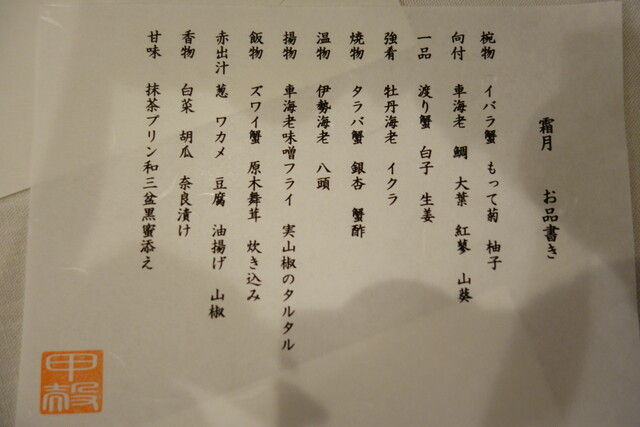 霜月 お品書き
椀物 イバラ蟹 もって菊 柚子
向付 車海老 鯛 大葉 紅蓼 山葵
一品 渡り蟹 白子 生姜
強肴 牡丹海老 イクラ
焼物 タラバ蟹 銀杏 蟹酢
温物 伊勢海老 八頭
揚物 車海老味噌フライ 実山椒のタルタル
飯物 ズワイ蟹 原木舞茸 炊き込み
赤出汁 葱 ワカメ 豆腐 油揚げ 山椒
香物 白菜 胡瓜 奈良漬け
甘味 抹茶プリン和三盆黒蜜添え
甲殻